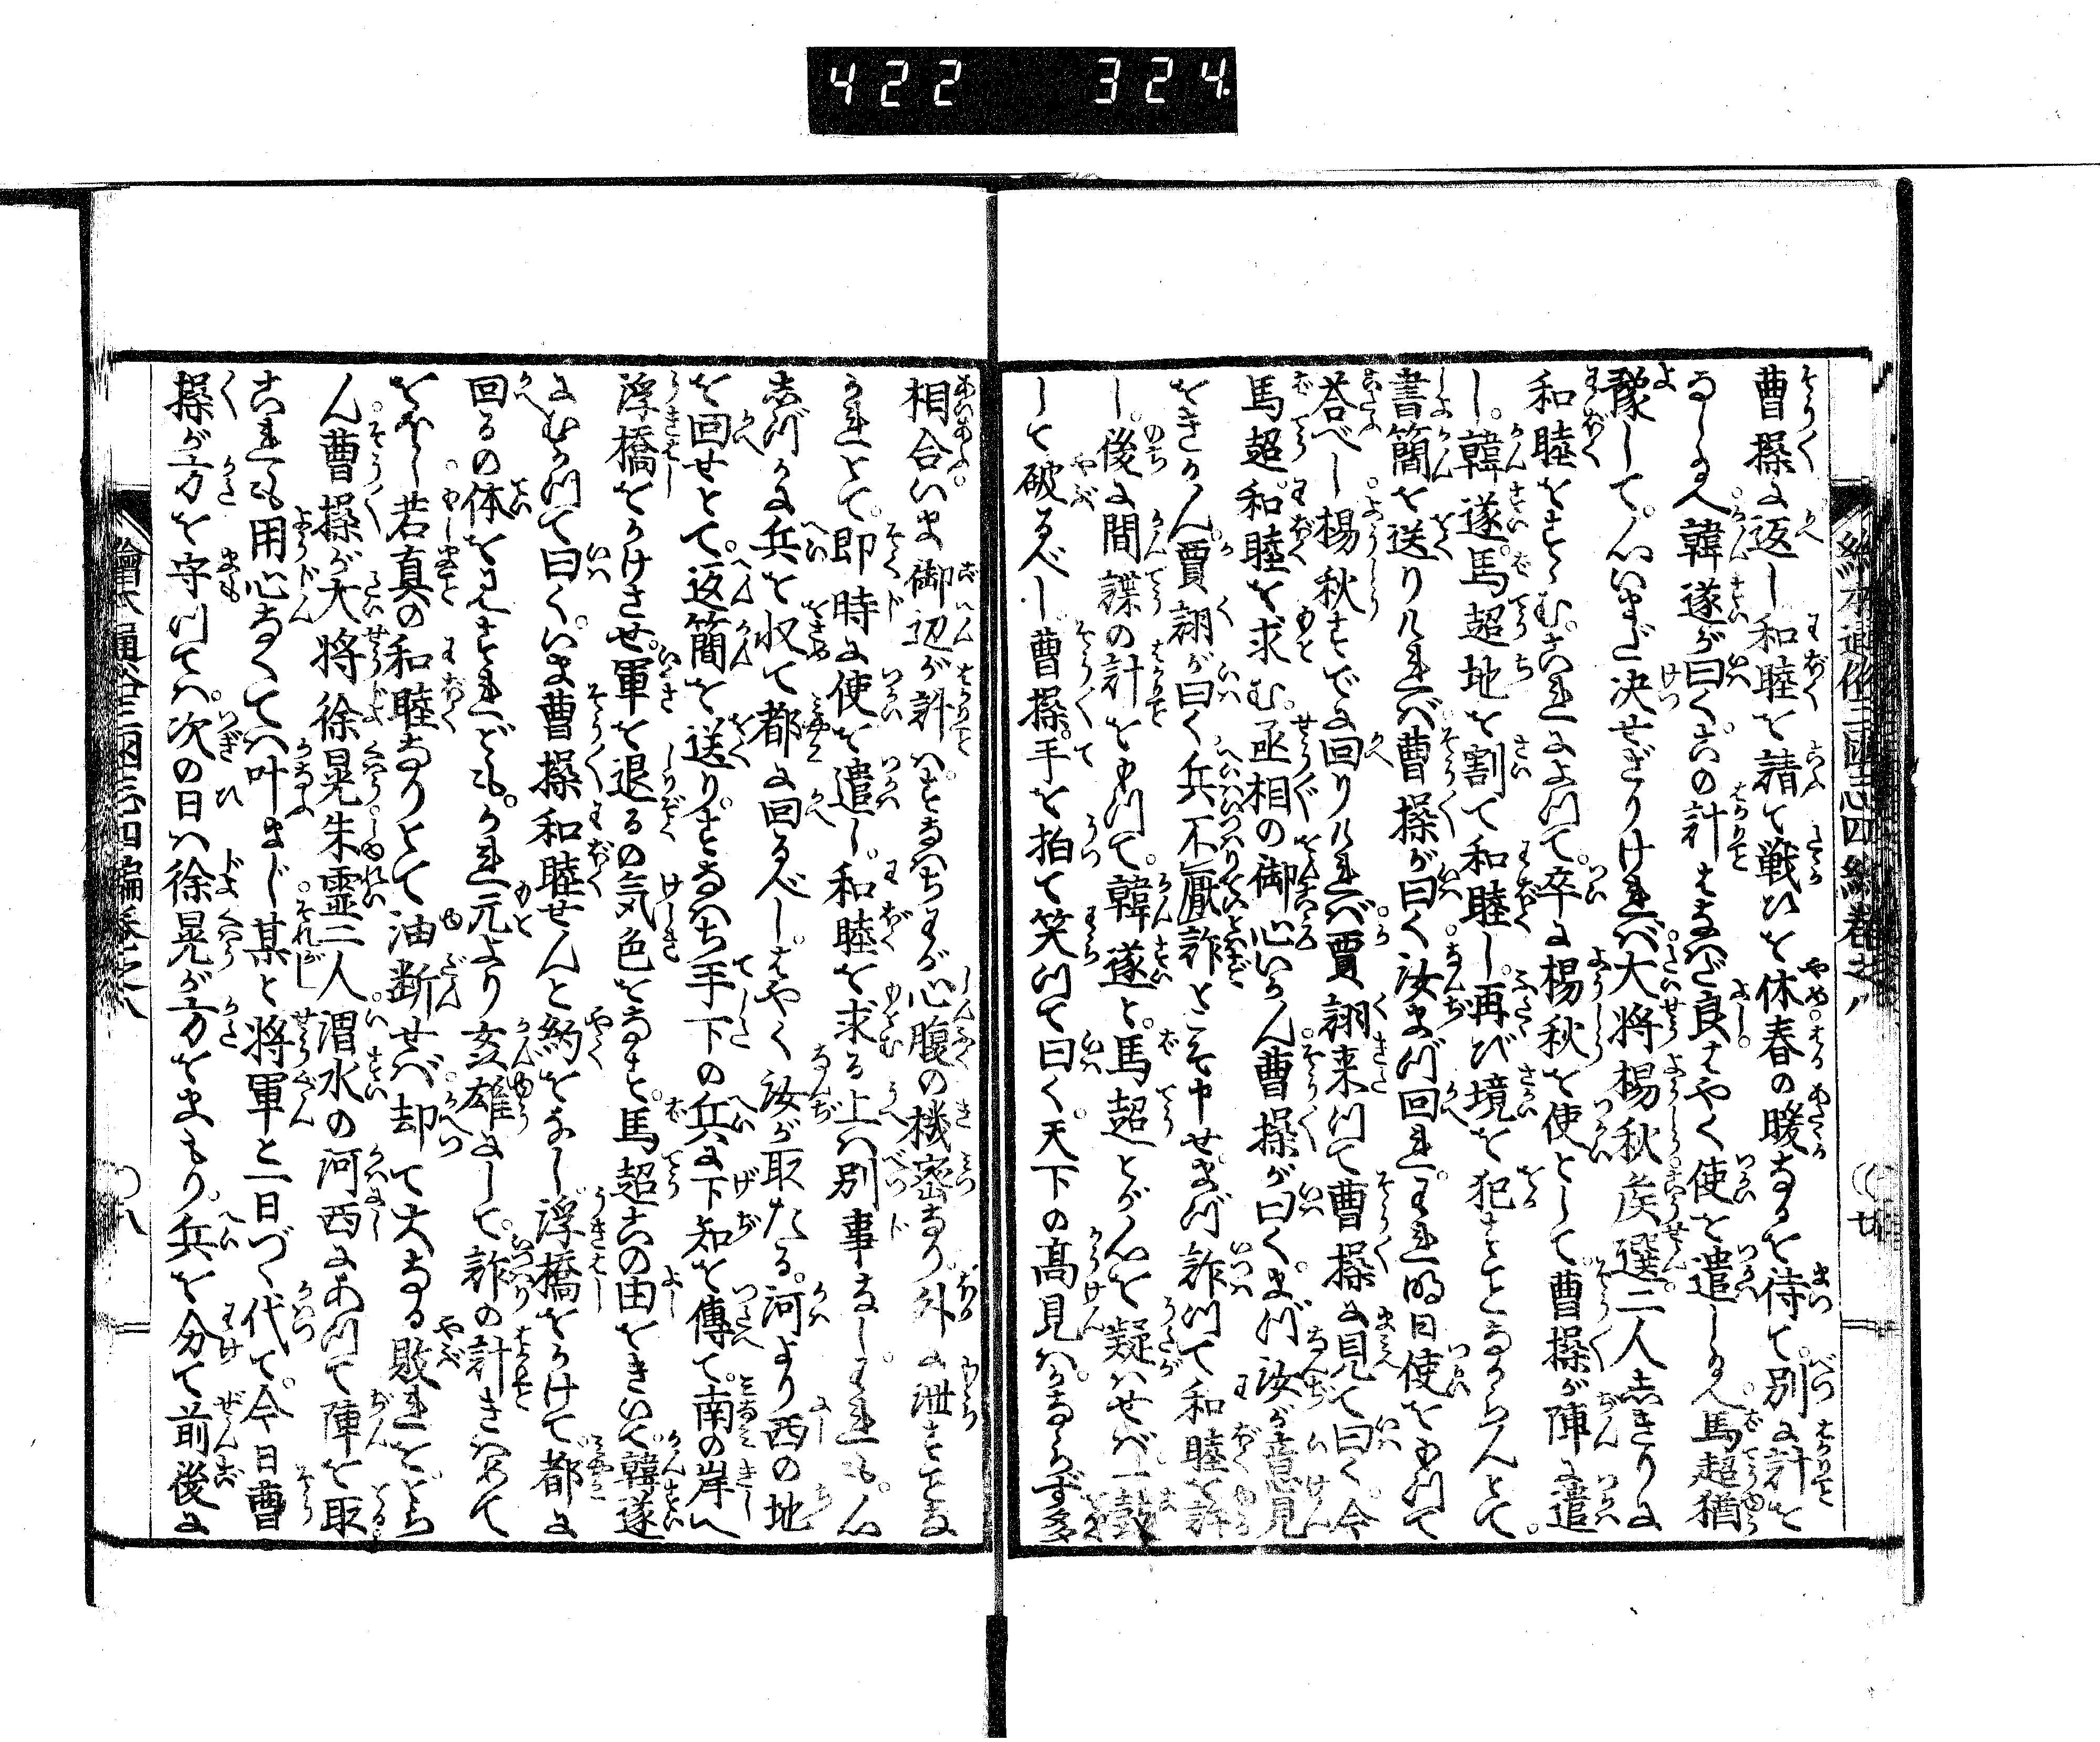 422 324.
曹操に返し和睦を請て戦ひを休春の暖なるを待て。別に計を
なしゐへ韓遂が曰く。この計はなはだ良はやく使を遣しゐへ馬超猶
豫して。心いまだ决せざりけれバ大将楊秋侯選二人しきりに
和睦をすゝむ。これによつて。卒に楊秋を使として。曹操が陣に遣
し。韓遂馬超地を割て和睦し。再び境を犯すことなからんとて。
書簡を送りけれバ曹操が曰く汝まづ回れ。われ明日使をもつて
荅べし楊秋すでに回りけれバ賈詡来つて曹操に見て曰く今
馬超和睦を求む。丞相の御心いかん曹操が曰く。まづ汝が意見
をきかん賈詡が曰く兵不厭詐とこそ申せまづ詐つて和睦を許
し。後に間諜の計をもつて。韓遂と馬超とが心を疑ハせバ一鼓に
して破るべし。曹操。手を拍て笑つて曰く。天下の高見ハかならず多
相合いま御辺が計ハすなハちわが心腹の機密なり外に泄すとな
かれとて。即時に使を遣し。和睦を求る上ハ別事なし。われも。心
しづかに兵を収て都に回るべし。はやく汝が取たる。河より西の地
を回せとて。返簡を送り。すなハち手下の兵に下知を傳て。南の岸へ
浮橋をかけさせ。軍を退るの気色をなす。馬超この由をきいて。韓遂
にむかつて曰く。いま曹操和睦せんと約をなし浮橋をかけて都に
回るの体をみすれども。かれ元より奸雄にして。詐の計きハめて
をほし若真の和睦なりとて油断せバ却て大なる敗れをとら
ん曹操が大将徐晃朱霊二人渭水の河西にあつて陣を取
これも用心なくてハ叶まじ某と将軍と一日づゝ代て。今日曹
操が方を守つてハ。次の日ハ徐晃が方をまもり。兵を分て前後に
繪本通俗三國志四編巻之八